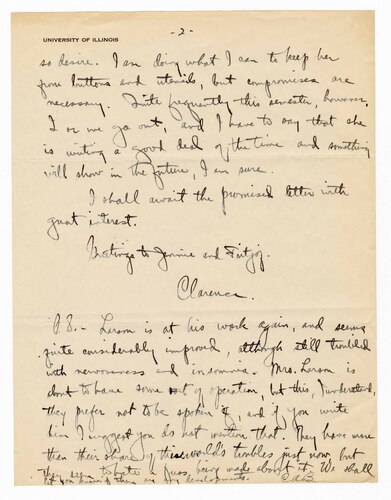 UNIVERSITY OF ILLINOIS
- 2 -
so desire. I am doing what I can to keep her
from buttons and utensils, but compromises are
necessary. Quite frequently this semester, however,
I or we go out, and I have to say that she
is writing a good deal of the time and something
will show in the future, I am sure.
I shall await the promised letter with
great interest.
Greetings to Jennie and
Clarence.
P.S. - Larson is at his work again, and seems
quite considerably improved, although still troubled
with nervousness and insomnia. Mrs. Larson is
about to have some sort of operation, but this, I understand,
they prefer not to be spoken of, and if you write
him I suggest you do not mention that. They have more
than their share of this world's troubles just now but
they seem to hate a fuss being made about it. We shall
let you know if there are any developments.